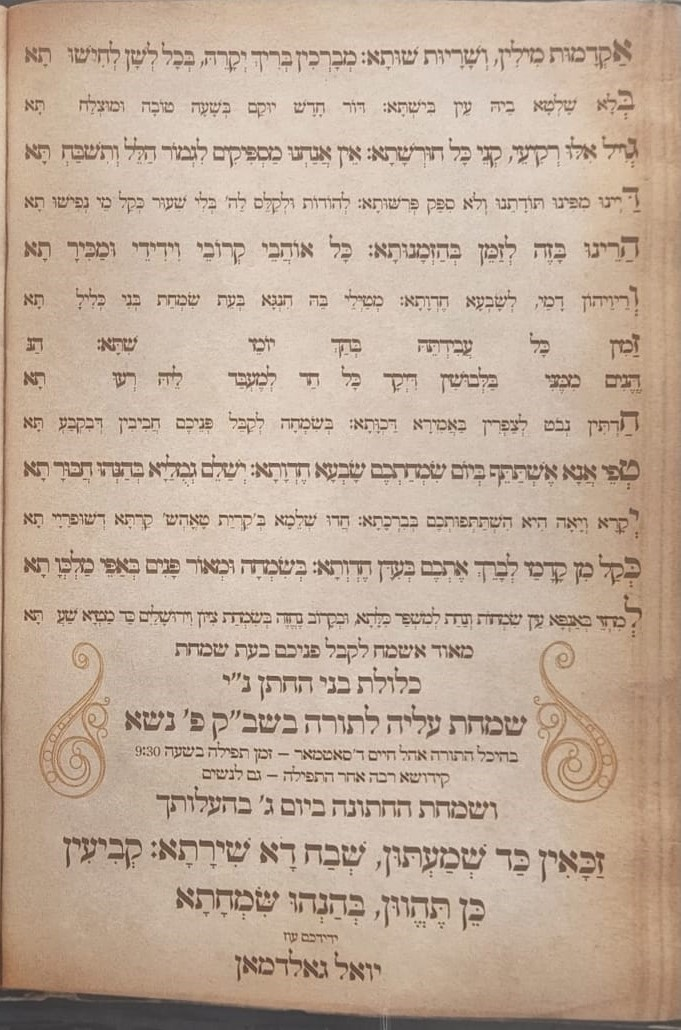 אַקְדָמוּת מִילִין, וְשָׁרָיוּת שׁוּתָא: מְבָרְכִין בְּרִיךְ יְקָרֵהּ, בְּכָל לְשָׁן לְחִישׁוּ תָא
בְּלָא שַׁלְטָא בֵיהּ עֵין בִּישְׁתָא: דּוֹר חָדָשׁ יוּקַם בְּשָׁעָה טוֹבָה וּמוּצְלַח תָּא
גְּוִיל אִלּוּ רְקִיעֵי, קְנֵי כָּל חוּרְשָׁתָא: אֵין אֲנַחְנוּ מַסְפִּיקִים לִגְמוֹר הַלֵּל וְתִשְׁבַּחְ תָּא
מִפִּינוּ תּוֹדָתֵנוּ וְלֹא סִפֵּק פְּרִשׁוּתָא: לְהוֹדוֹת וּלְקַלֵּס לַה' בְּלִי שִׁעוּר כְּקַל מַי נְפִישׁוּ תָא
הֲרֵינוּ בָּזֶה לְזַמֵּן בְּהַזְמָנוּתָא: כָּל אוֹהֲבַי קְרוֹבַי וִידִידַי וּמַכִּירָ תָא
דָמֵי, לְשִׁבְעָא חֶדְוָתָא: מְטַיְּלֵי בַּהּ חִנְגָּא בְּעֵת שִׂמְחַת בְּנֵי כְּלִילָ תָא
זְמִין כָּל עֲבִידְתֵּהּ בְּהַךְ יוֹמֵי שַׁתָּא: הֲנ
הֲנִים מִמֶּנִּי בַּלְּבוּשִׁין דִּיקָר כָּל חַד לְמֶעְבַּד לֵיהּ רְעוּ תָא
נְבוֹט לְצַפְרִין בַּאֲמִירָא דַּכְוָתָא: בְּשִׂמְחָה לְקַבֵּל פְּנֵיכֶם חֲבִיבִין דְּבִקְבַעְ תָּא
טְפֵי אֲנָא אֶשְׁתַּתֵּף בְּיוֹם שִׂמְחַתְכֶם שִׁבְעָא חֶדְוָתָא: יְשַׁלֵּם גְּמֻלַיָּא בְּהַנְהוּ חֲבוּרָ תָא
יְקָרָא וְיָאָה הִיא הִשְׁתַּתְּפוּתְכֶם בְּבִרְכָתָא: חֲדוּ שְׁלֵמָא בְּ'קִרְיַת טָאָהְשׁ' קַרְתָּא דְשׁוּפְרַיָּ תָא
כְּקַל מִן קֳדָמַי לְבָרֵךְ אֶתְכֶם בְּעִדָּן חֶדְוָתָא: בְּשִׂמְחָה וּמְאוֹר פָּנִים בְּאַפֵּי מַלְכְּוָ תָא
שְׂמָחוֹת וְנַחַת וּבְקָרוֹב נֶחֱזֶה בְּשִׂמְחַת צִיּוֹן וִירוּשָׁלַיִם כַּד מְטָא שַׁעְ תָּא
מאוד אשמח לקבל פניכם בעת שמחת
כלולת בני החתן נ"י
שמחת עליה לתורה בשב"ק פ' נשא
בהיכל התורה אהל חיים ד'סאטמאר – זמן תפילה בשעה 9:30
קידושא רבה אחר התפילה – גם לנשים
ושמחת החתונה ביום ג' בהעלותך
זַכָּאִין כַּד שְׁמַעְתּוּן, שְׁבַח דָּא שִׁירָתָא: קְבִיעִין
כֵּן תֶּהֱווּן, בְּהַנְהוּ שִׂמְחָתָא
ידידכם עוז
יואל גאלדמאן